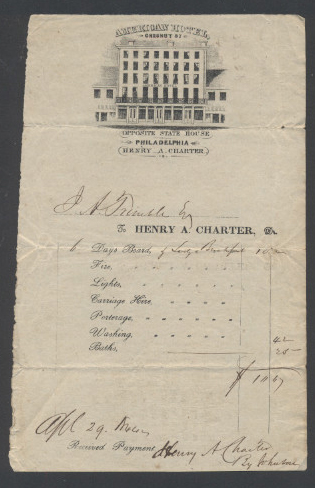 AMERICAN HOTEL
CHESNUT ST
OPPOSITE STATE HOUSE
PHILADELPHIA
(HENRY A. CHARTER.)
J. A. Trimble Esq
To HENRY A. CHARTER, Dr.
6 Days Board, & Lady Breakfast
Fire,
Lights,
Carriage Hire,
Porterage,
Washing, 42
Baths, 25
$
Apl 29
Received Payment Henry A Charter